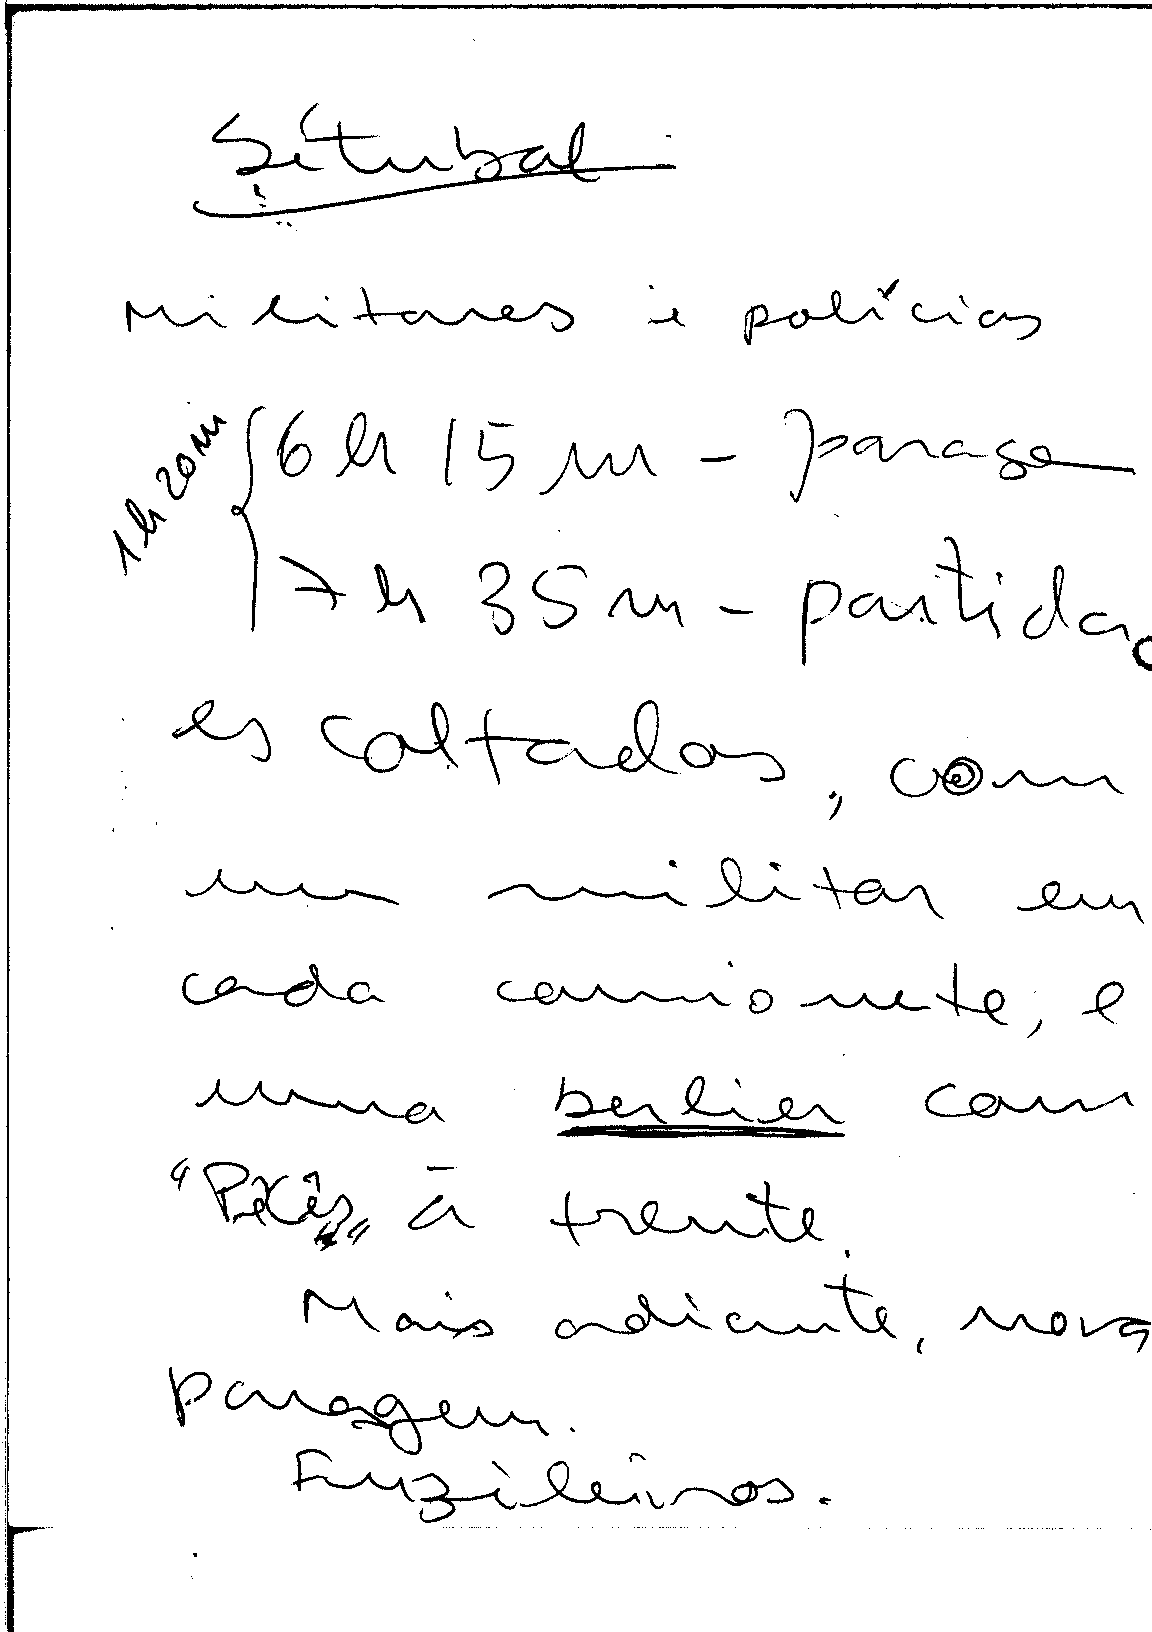 Sétubal
Militares e polícias
1h 20m
6h 15m - paragem
7h 35m - partida,
escoltados, com
um militar em
cada camionete, e
uma berlier com
à frente.
Mais adiante, nova
paragem.
Fuzileiros.